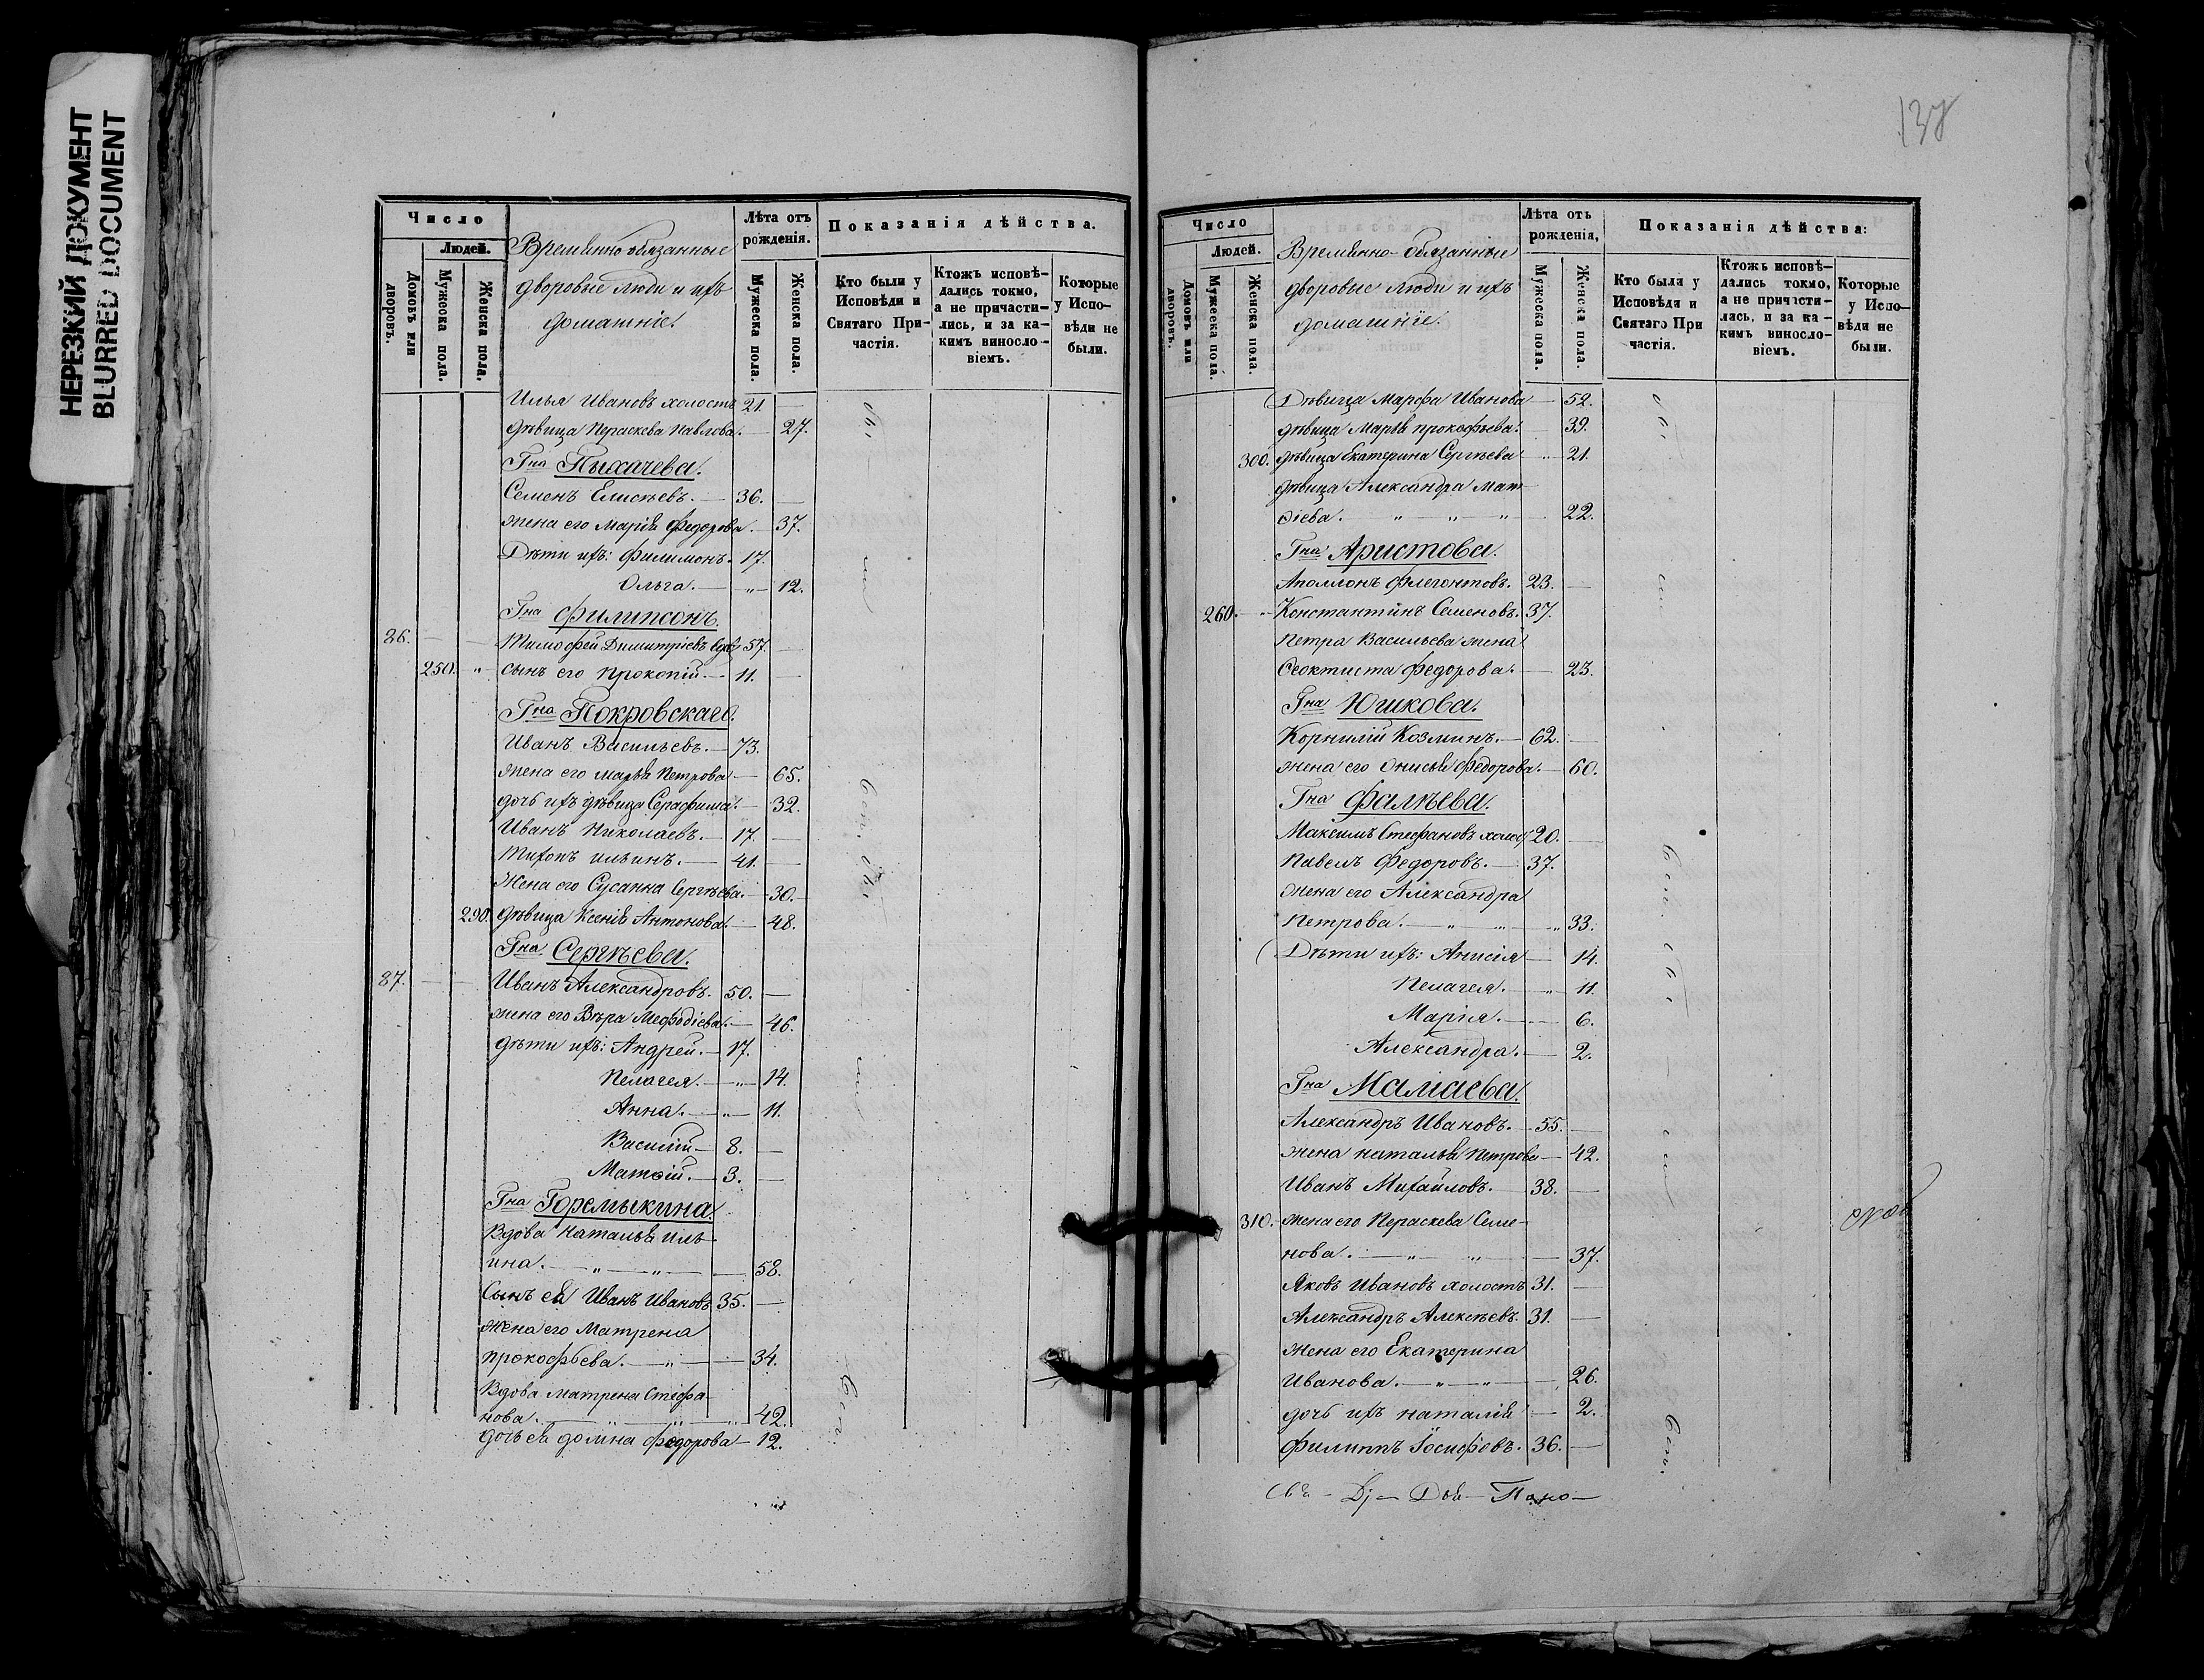 НЕРЕЗКИЙ ДОКУМЕНТ
BLURRED DOCUMENT
Число
Людей.
Домовъ или дворовъ.
Мужеска пола.
Женска пола.
Временно обязанные
дворовые люди и ихъ
домашніе.
Лѣта отъ
рожденія.
Мужеска пола.
Женска пола.
Показанія дѣйства.
Кто были у
Исповѣди и
Святаго При-
частія.
Ктожъ исповѣ-
дались токмо,
а не причасти-
лись, и за ка-
кимъ винословіемъ.
Которые
у Испо-
вѣди не
были.
Илья Ивановъ холостъ 21.
дѣвица Параскева Павлова. 27.
Гна Пыхачева.
Семенъ Елисѣевъ. 36.
жена его Марія Федорова. 37.
Дѣти ихъ: Филимонъ. 17.
Ольга. 12.
Гна Филипсонъ.
86. Тимофей Димитріевъ вдов 57.
250. сынъ его Прокопій. 11.
Гна Покровскаго.
Иванъ Васильевъ. 73.
жена его Марья Петрова 65.
дочь ихъ дѣвица Серафима. 32.
Иванъ Николаевъ. 17.
Тихонъ Ильинъ. 41.
Жена его Сусанна Сергѣева. 30.
290. дѣвица Ксенія Антонова. 48.
Гна Сергѣева.
87. Иванъ Александровъ. 50.
жена его Вѣра Мефодіева. 46.
дѣти ихъ: Андрей. 17.
Пелагея. 14.
Анна. 11.
Василій 8.
Матѳій. 3.
Гна Горемыкина
Вдова Наталья Иль-
ина. 58.
Сынъ ея Иванъ Ивановъ 35.
жена его Матрена
Прокофьева. 34.
Вдова Матрена Стефа-
нова. 42.
дочь ея Домна Федорова 12.
137
Число
Людей.
Домовъ или дворовъ.
Мужеска пола.
Женска пола.
Временно-обязанные
дворовые люди и ихъ
домашніе.
Лѣта отъ
рожденія,
Мужеска пола.
Женска пола.
Показанія дѣйства:
Кто были у
Исповѣди и
Святаго При
частія.
Ктожъ исповѣ-
дались токмо,
а не причасти-
лись, и за ка-
кимъ винословіемъ.
Которые
у Испо-
вѣди не
были.
Дѣвица Марфа Иванова 52.
дѣвица Марья Прокофьева. 39.
300. дѣвица Екатерина Сергѣева 21.
дѣвица Александра Мат-
ѳіева. 22.
Гна Аристова.
Аполлонъ Флегонтовъ. 23.
260. Константинъ Семеновъ. 37.
Петра Васильева жена
Ѳеоктиста Федорова. 23.
Гна Юшкова.
Корнилій Козминъ. 62.
жена его Онисья Федорова. 60.
Гна Фалѣева.
Максимъ Стефановъ холос 20.
Павелъ Федоровъ. 37.
жена его Александра
Петрова. 33.
Дѣти ихъ: Анисія 14.
Пелагея. 11.
Марія. 6.
Александра. 2.
Гна Мамаева.
Александръ Ивановъ. 55.
жена Наталья Петрова 42.
Иванъ Михайловъ. 38.
310. жена его Параскева Семе-
нова. 37.
Яковъ Ивановъ холостъ 31.
Александръ Алексѣевъ. 31.
жена его Екатерина
Иванова. 26.
дочь ихъ Наталія 2.
Филиппъ Іосифовъ. 36.